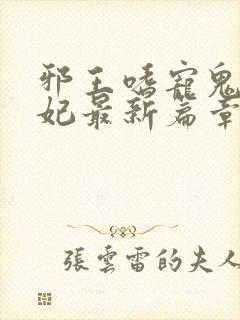 邪王嗜寵鬼
妃最新篇章
張雲雷的夫人